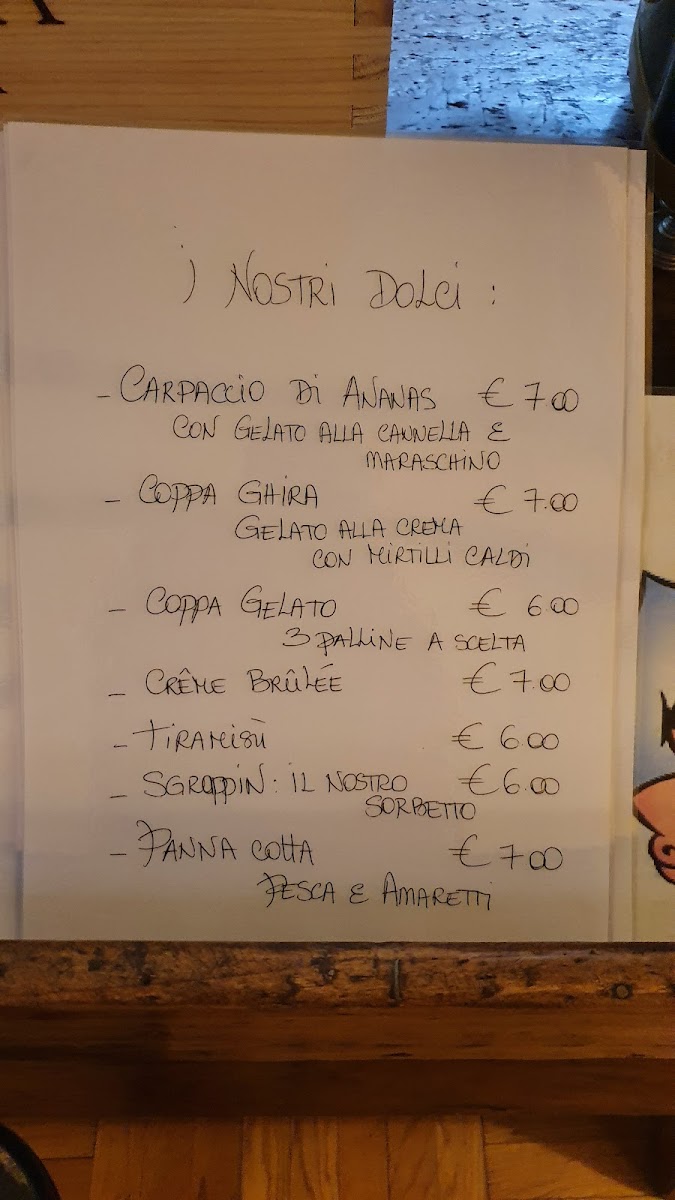 i NOSTRI DOLCI :
- CARPACCIO DI ANANAS € 7.00
CON GELATO ALLA CANNELLA E
MARASCHINO
- COPPA GHIRA € 7.00
GELATO ALLA CREMA
CON MIRTILLI CALDI
- COPPA GELATO € 6.00
3 PALLINE A SCELTA
- CRÊME BRÛLÉE € 7.00
- TIRAMISÙ € 6.00
- SGROPPIN: IL NOSTRO € 6.00
SORBETTO
- PANNA COTTA € 7.00
PESCA E AMARETTI